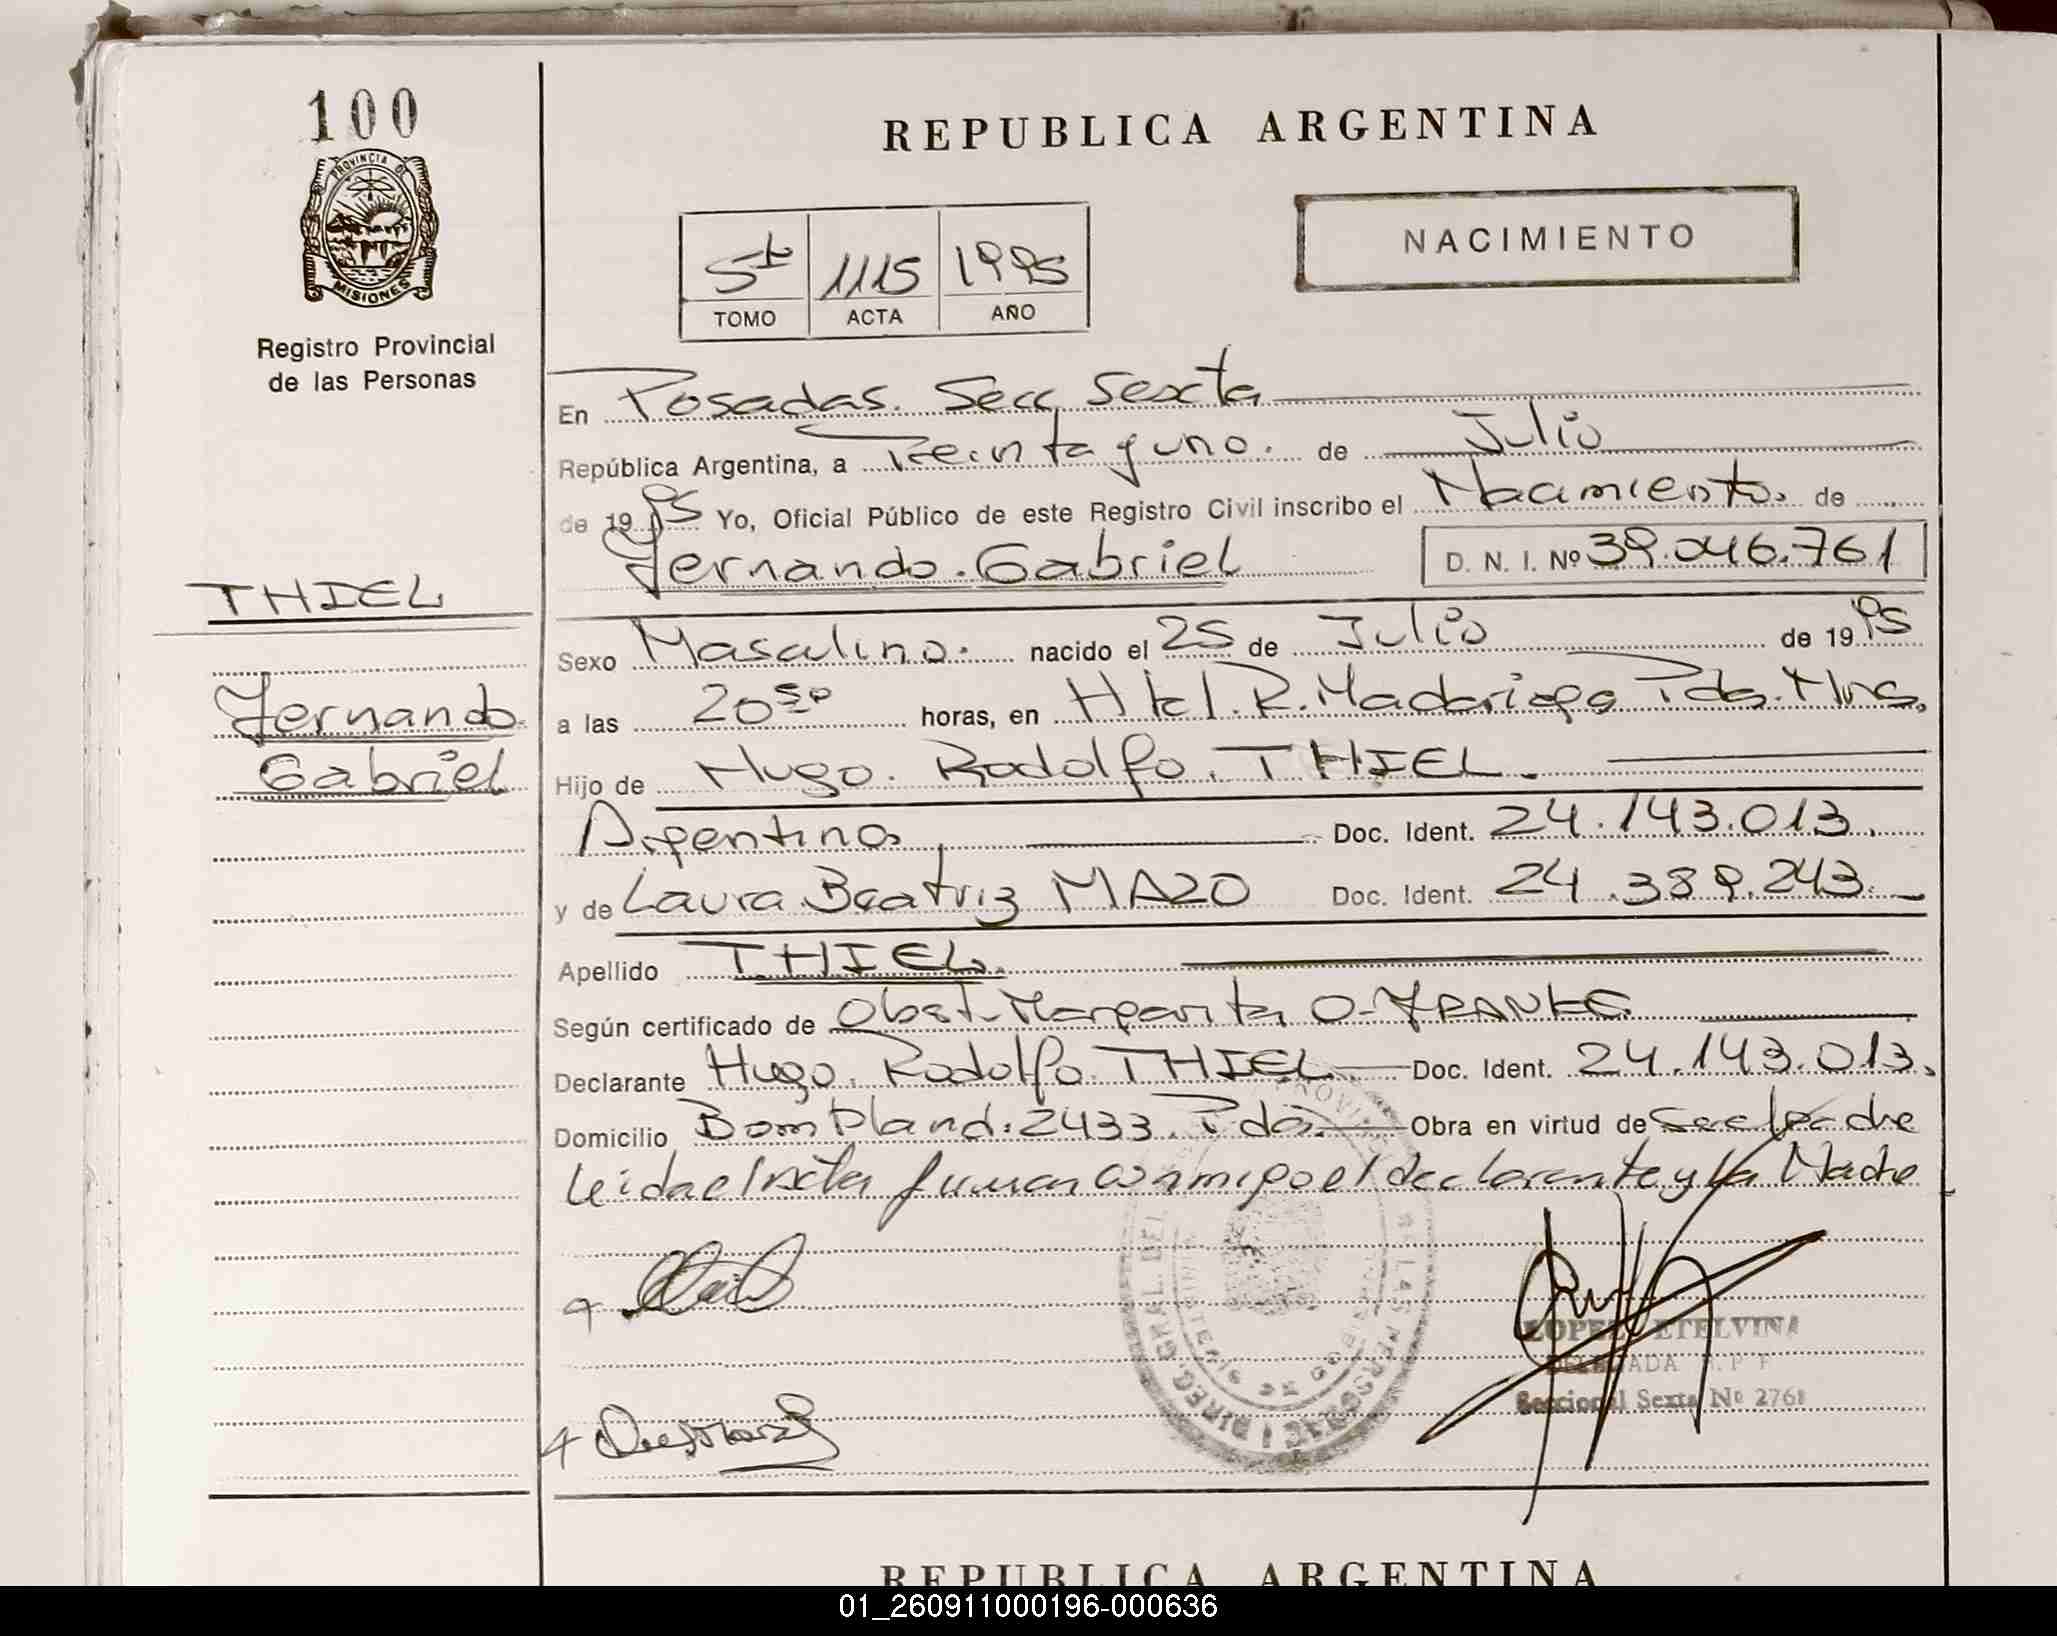 100
PROVINCIA DE
MISIONES
Registro Provincial
de las Personas
REPUBLICA ARGENTINA
NACIMIENTO
5to 1115 1995
TOMO ACTA AÑO
En Posadas. Secc Sexta
República Argentina, a Treinta y uno. de Julio
de 1995 Yo, Oficial Público de este Registro Civil inscribo el Nacimiento. de
Fernando. Gabriel D. N. I. Nº 39.046.761
THIEL
Fernando
Gabriel
Sexo Masculino. nacido el 25 de Julio de 1995
a las 20 50 horas, en Htal. R. Madariaga Pdas. Mnes.
Hijo de Hugo. Rodolfo. THIEL.
Argentino Doc. Ident. 24.143.013.
y de Laura Beatriz MAZO Doc. Ident. 24.389.243.
Apellido THIEL.
Según certificado de Obst. Margarita O. FRANKE
Declarante Hugo. Rodolfo THIEL Doc. Ident. 24.143.013.
Domicilio Bompland. 2433. Pdas. Obra en virtud de ser padre
leida el acta firman conmigo el declarante y la Madre
LOPEZ ETELVINA
DELEGADA R. P. P
Seccional Sexta Nº 2768
REPUBLICA ARGENTINA
01_260911000196-000636